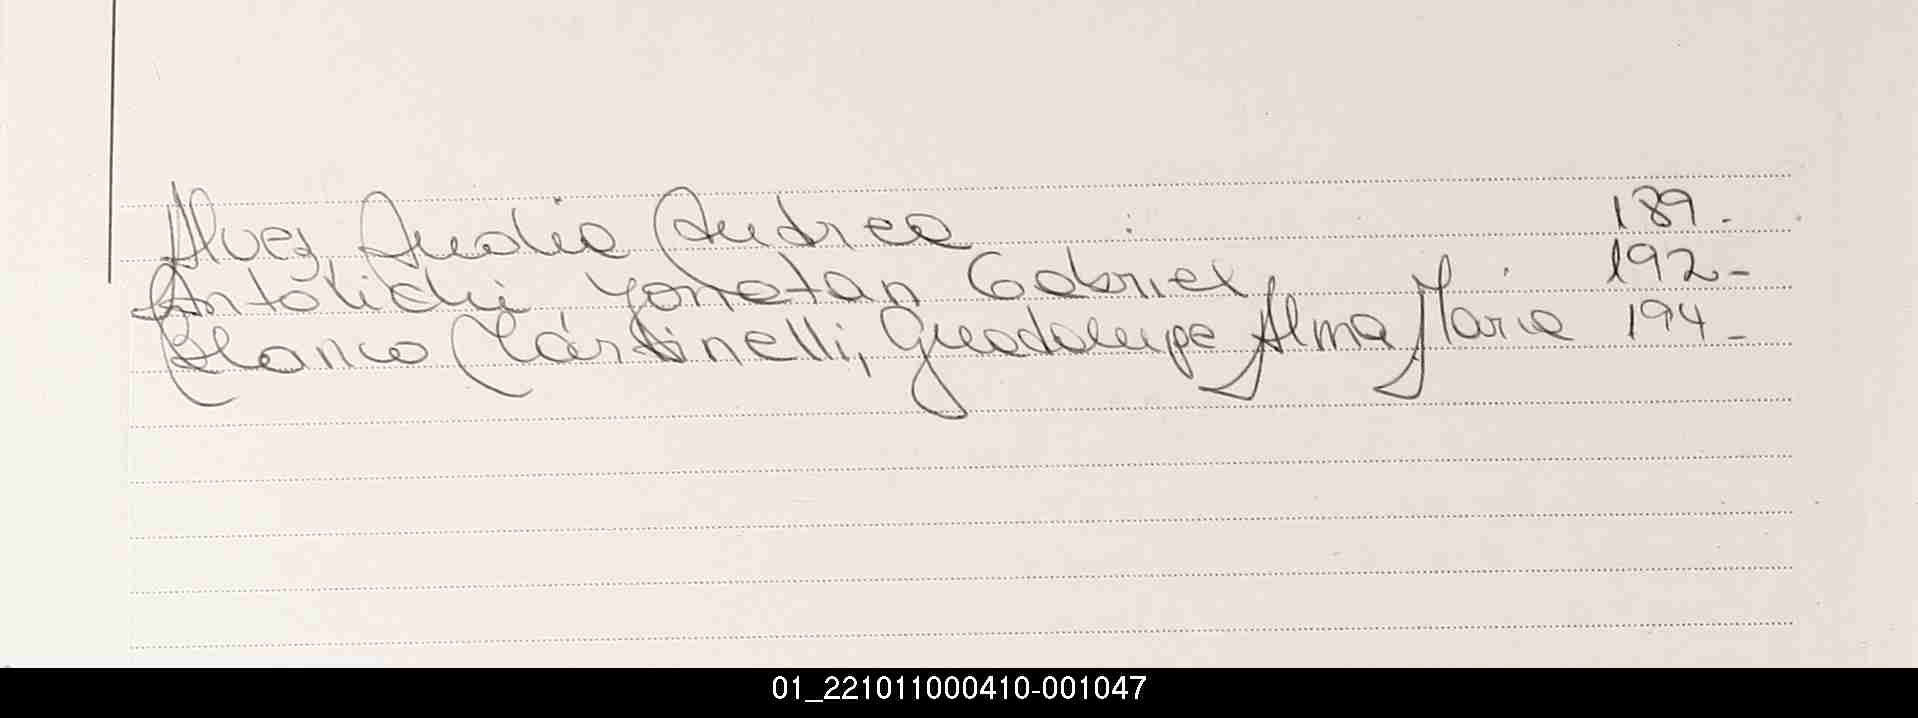 Alves, Analia Andrea 189.
Antolichi Yonatan Gabriel 192-
Blanco Martinelli, Guadalupe Alma Maria 194-
01_221011000410-001047